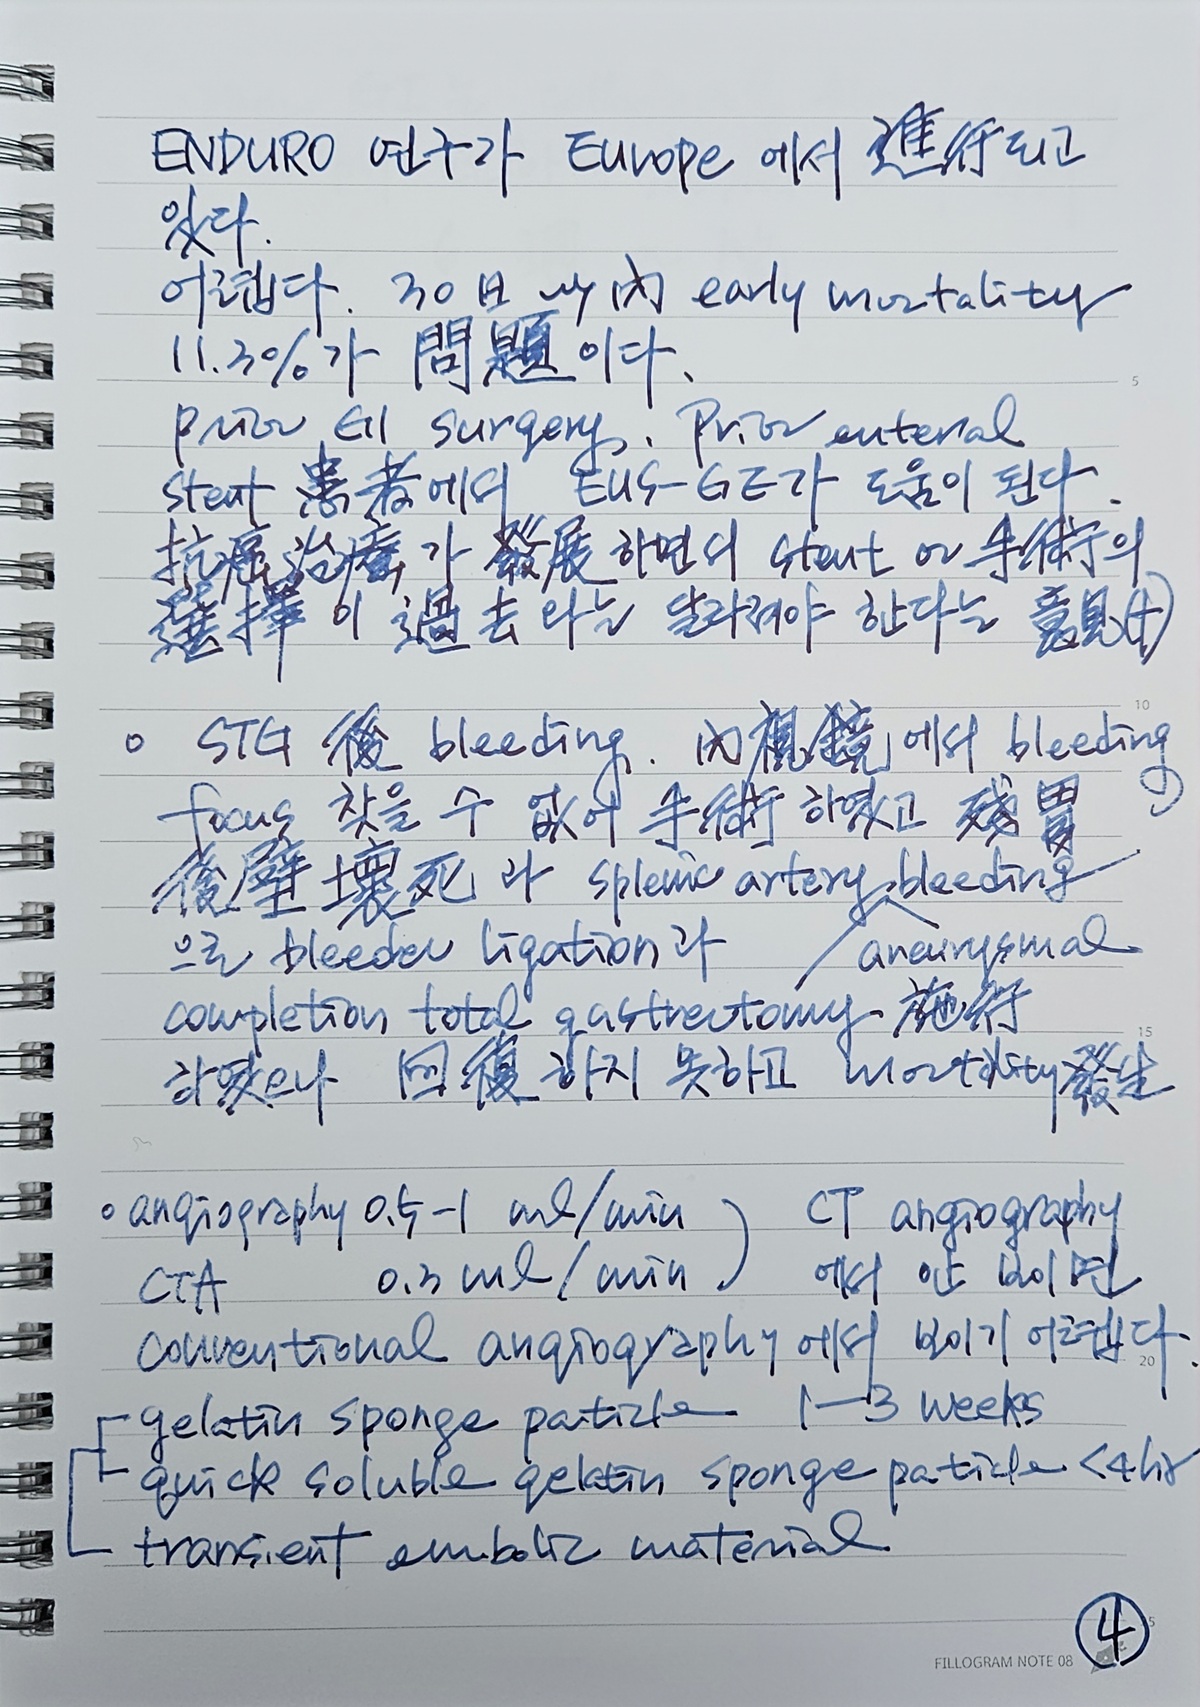 ENDURO 연구가 Europe 에서 進行되고
있다.
어렵다. 30日 以內 early mortality
11.3%가 問題이다.
prior GI surgery, prior enteral
stent 患者에서 EUS-GE가 도움이 된다.
抗癌治療가 發展하면서 stent or 手術의
選擇이 過去와는 달라져야 한다는 意見(+)
○ STG 後 bleeding. 內視鏡에서 bleeding
focus 찾을 수 없어 手術하였고 殘胃
後壁壞死와 splenic artery bleeding
으로 bleeder ligation과 aneurysmal
completion total gastrectomy 施行
하였으나 回復하지 못하고 mortality 發生
○ angiography 0.5-1 ml/min ) CT angiography
CTA 0.3 ml/min 에서 안 보이면
conventional angiography에서 보이기 어렵다.
gelatin sponge particle 1-3 weeks
quick soluble gelatin sponge particle <4hr
transient embolic material
4
FILLOGRAM NOTE 08
5
10
15
20